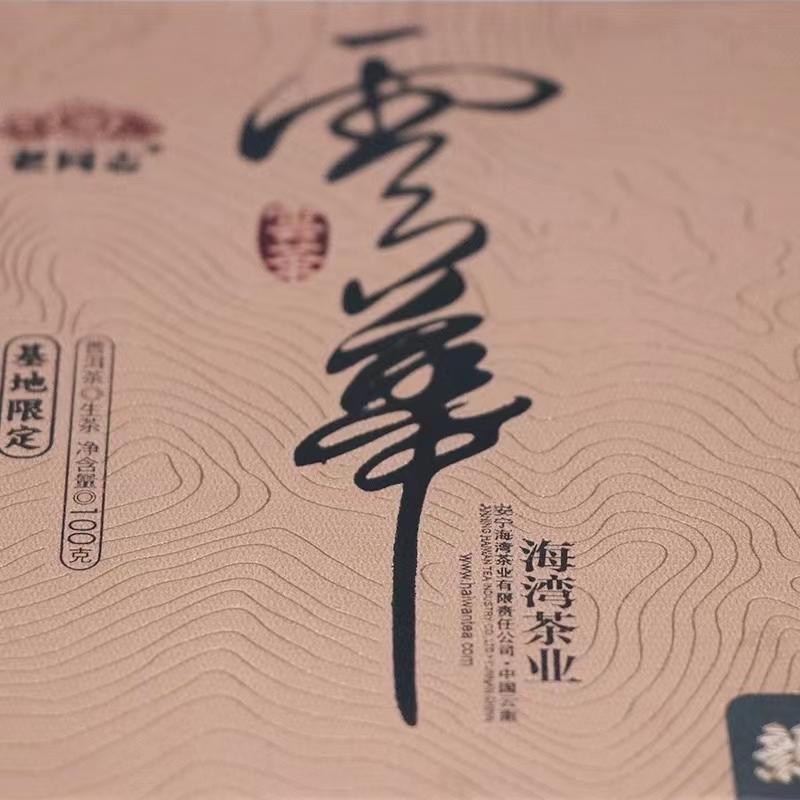 雲華
老同志
基地限定
普洱茶◎生茶 净含量◎100克
海湾茶业
安宁海湾茶业有限责任公司·中国云南
ANNING HAIWAN TEA INDUSTRY CO.,LTD·YUNNAN CHINA
www.haiwantea.com